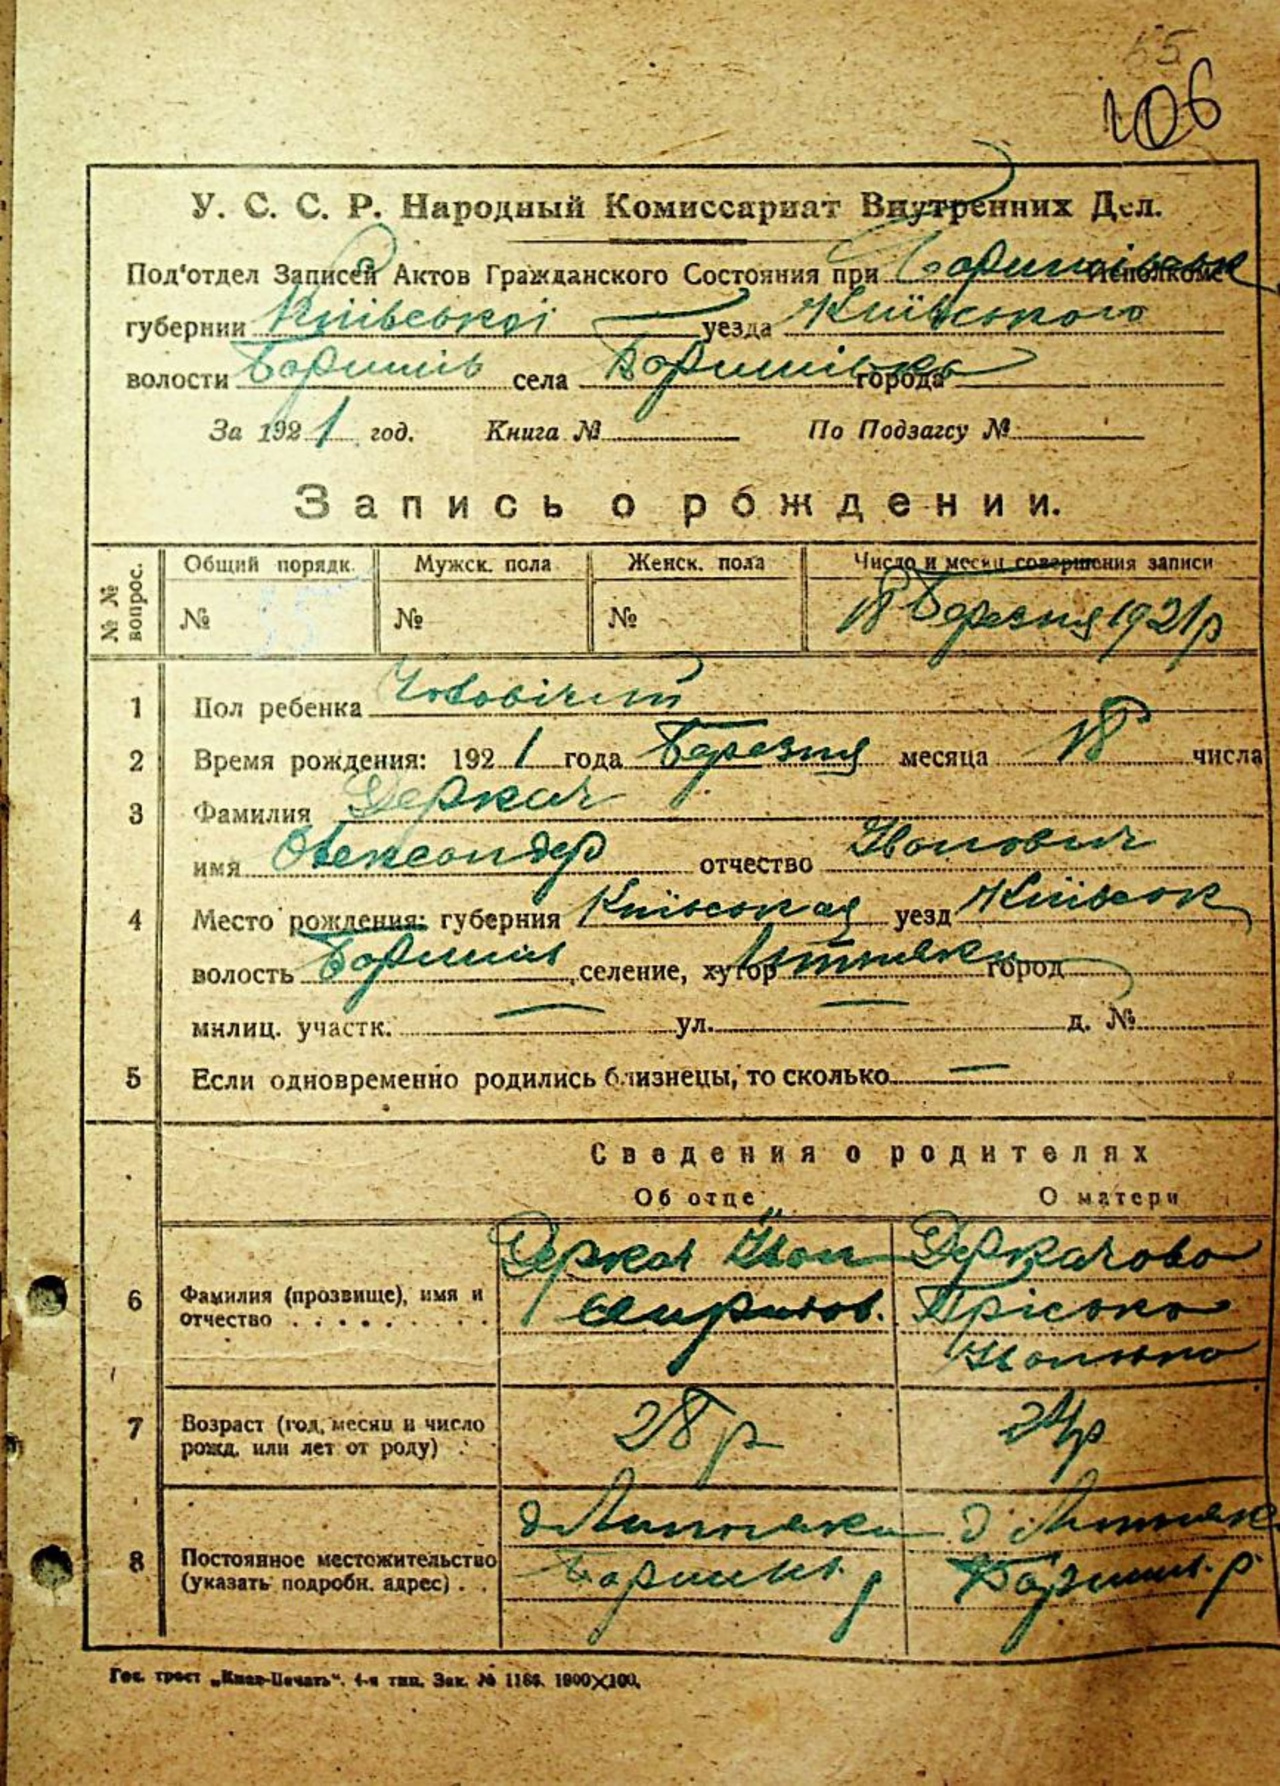 55
106
У. С. С. Р. Народный Комиссариат Внутренних Дел.
Под'отдел Записей Актов Гражданского Состояния при Исполкоме
губернии Київської уезда Київського
волости Баришів села города
За 1921 год. Книга № По Подзагсу №
Запись о рождении.
№ № вопрос. Общий порядк. Мужск. пола Женск. пола Число и месяц совершения записи
№ 55 № № 18 Березня 1921 р
1 Пол ребенка Чоловічий
2 Время рождения: 1921 года Березня месяца 18 числа
3 Фамилия Деркач
имя Олександер отчество Іванович
4 Место рождения: губерния Київськая уезд Київськ
волость Баришів селение, хутор город
милиц. участк. — ул. — д. №
5 Если одновременно родились близнецы, то сколько —
Сведения о родителях
Об отце О матери
6 Фамилия (прозвище), имя и отчество Деркач Іван Деркачова Пріська
7 Возраст (год, месяц и число рожд. или лет от роду) 28 р 24 р
8 Постоянное местожительство (указать подробн. адрес) д Баришів. р д Баришів. р
Гос. трест „Киев-Печать“. 4-я тип. Зак. № 1186. 1000×100.